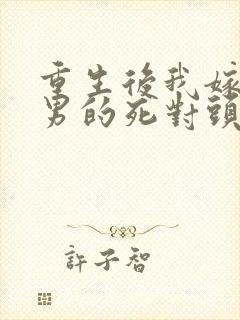 重生後我嫁
男的死對頭
許子智